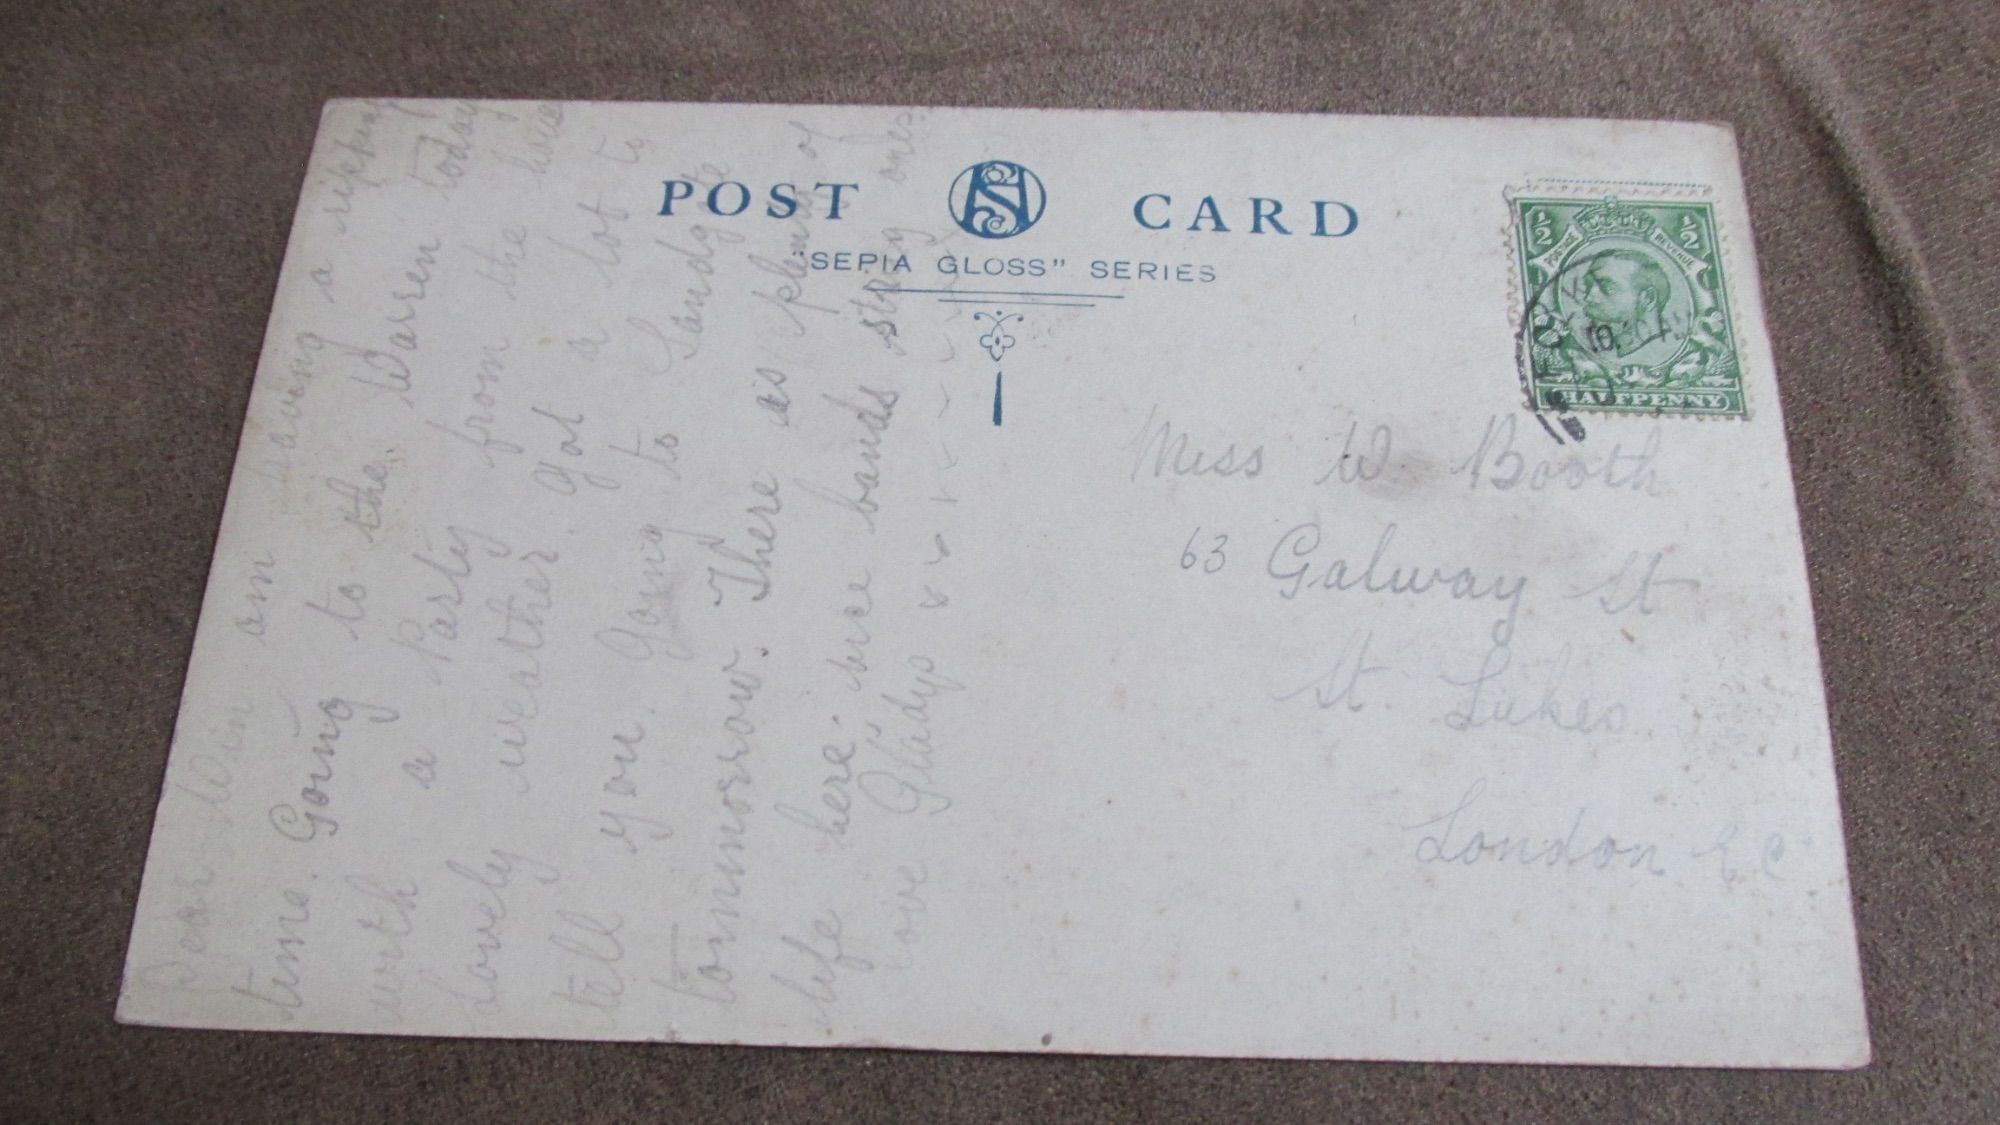 POST CARD
"SEPIA GLOSS" SERIES
½ ½
POSTAGE REVENUE
HALFPENNY
Dear Win am having a ripping
time. Going to the Warren today
with a Party from the house
Lovely weather. Got a lot to
tell you. Going to Sandgate
tommorrow. There is plenty of
life here. nice bands string ones.
love Gladys x x x x x x x
Miss W. Booth
63 Galway St
St. Lukes
London E C